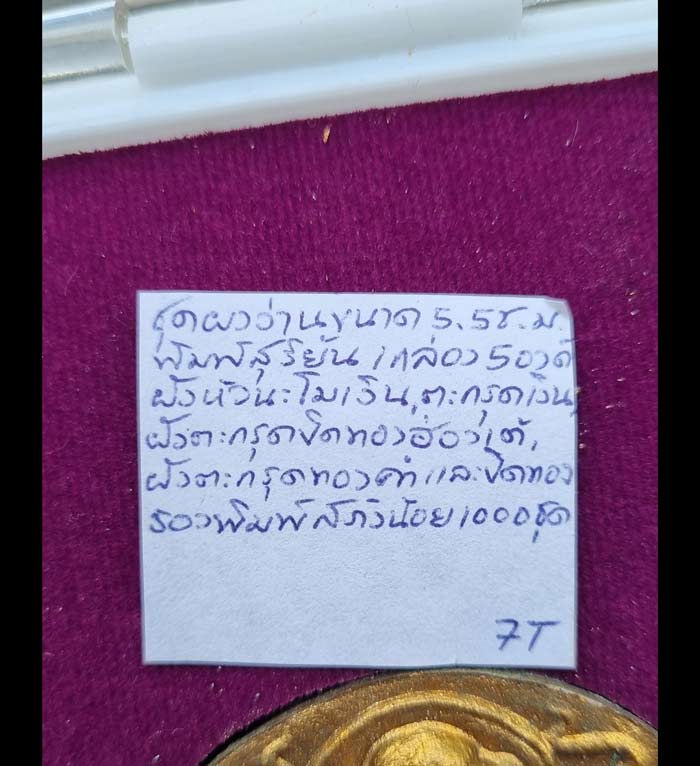 ชุดผงว่านขนาด 5.5ซ.ม.
พิมพ์สุริยัน 1กล่อง 5องค์
ฝังหัวนะโมเงิน,ตะกรุดเงิน,
ฝังตะกรุดปิดทองฮ่องเต้,
ฝังตะกรุดทองคำและปิดทอง
รองพิมพ์ 1000ชุด
7T